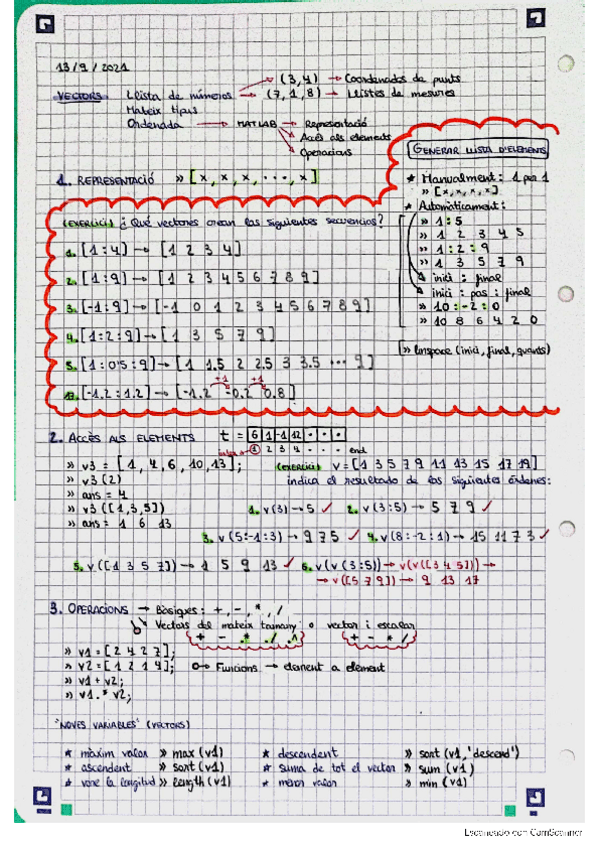 13/9/2021
(3,4) → Coordenades de punts
VECTORS Llista de números → (7,1,8) → Llistes de mesures
Mateix tipus
Ordenada → MATLAB → Representació
→ Accés als elements
→ Operacions
GENERAR LLISTA D'ELEMENTS
* Manualment: 1 per 1
» [x,x,x,x]
* Automàticament:
» 1:5
» 1 2 3 4 5
» 1:2:9
» 1 3 5 7 9
inici : final
inici : pas : final
» 10:-2:0
» 10 8 6 4 2 0
[» linspace (inici, final, quants)
1. REPRESENTACIÓ » [x, x, x, ..., x]
(EXERCICI) ¿Qué vectores crean las siguientes secuencias?
1. [1:4] → [1 2 3 4]
2. [1:9] → [1 2 3 4 5 6 7 8 9]
3. [-1:9] → [-1 0 1 2 3 4 5 6 7 8 9]
4. [1:2:9] → [1 3 5 7 9]
5. [1:0'5:9] → [1 1.5 2 2.5 3 3.5 ... 9]
[-1.2:1.2] → [-1.2 -0.2 0.8]
+1 +1
2. ACCÈS ALS ELEMENTS t = 6 1 -1 12 · · ·
1 2 3 4 · · · end
» v3 = [1, 4, 6, 10, 13];
» v3(2)
» ans = 4
» v3([1,3,5])
» ans = 1 6 13
(EXERCICI) v=[1 3 5 7 9 11 13 15 17 19]
indica el resultado de las siguientes órdenes:
1. v(3) → 5 ✓ 2. v(3:5) → 5 7 9 ✓
3. v(5:-1:3) → 9 7 5 ✓ 4. v(8:-2:1) → 15 11 7 3 ✓
5. v([1 3 5 7]) → 1 5 9 13 ✓ 6. v(v(3:5)) → v(v([3 4 5])) →
→ v([5 7 9]) → 9 13 17
3. OPERACIONS → Bàsiques: +, -, *, /
Vectors del mateix tamany o vector i escalar
+ - .* ./ .^ + - * /
» v1 = [2 4 2 7];
» v2 = [1 2 1 4]; Funcions → element a element
» v1 + v2;
» v1 .* v2;
"NOVES VARIABLES" (VECTORS)
* màxim valor » max(v1) * descendent » sort(v1,'descend')
* ascendent » sort(v1) * suma de tot el vector » sum(v1)
* la longitud » length(v1) * menor valor » min(v1)
Escaneado con CamScanner